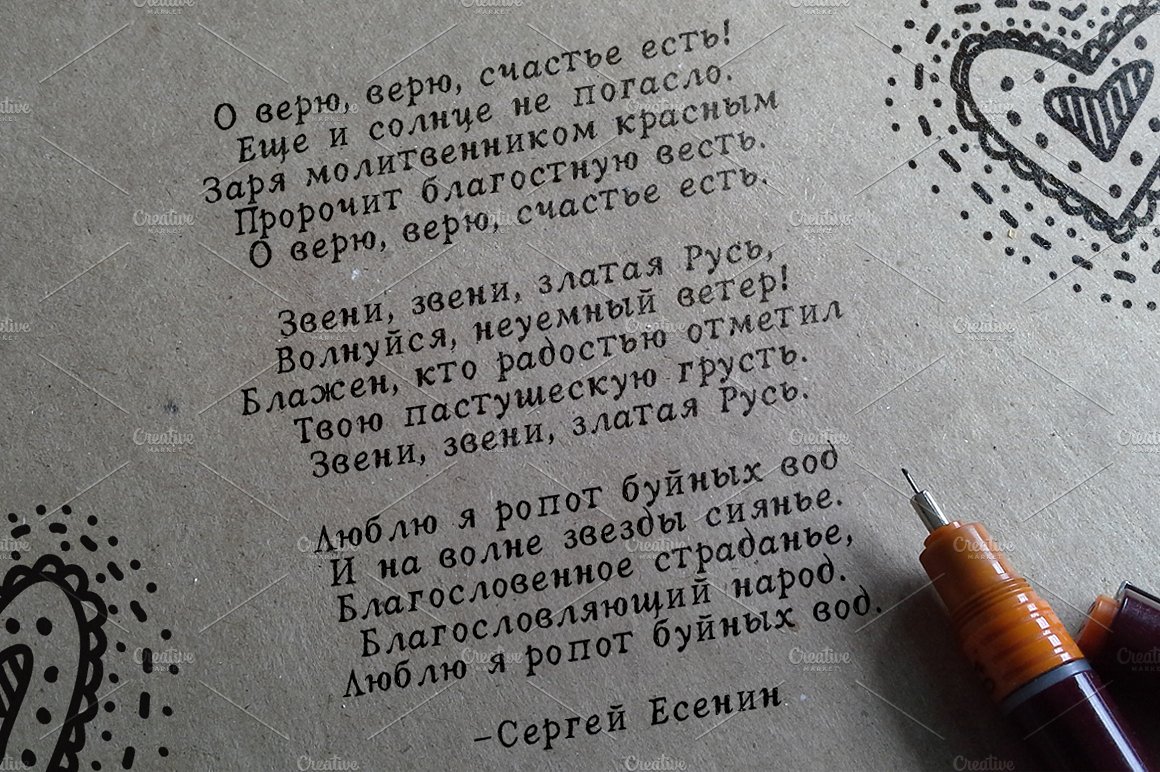 О верю, верю, счастье есть!
Еще и солнце не погасло.
Заря молитвенником красным
Пророчит благостную весть.
О верю, верю, счастье есть.
Звени, звени, златая Русь,
Волнуйся, неуемный ветер!
Блажен, кто радостью отметил
Твою пастушескую грусть.
Звени, звени, златая Русь.
Люблю я ропот буйных вод
И на волне звезды сиянье.
Благословенное страданье,
Благословляющий народ.
Люблю я ропот буйных вод.
–Сергей Есенин
Creative
MARKET